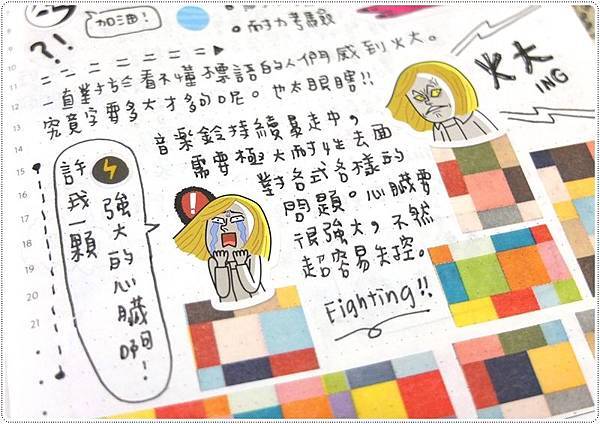 加油！
。耐力考驗
?!
一直對於看不懂標語的人們感到火大。
究竟字要多大才夠呢。也太眼瞎!!
火大
ING
音樂鈴持續暴走中，
需要極大耐性去面
對各式各樣的
問題。心臟要
很強大，不然
超容易失控。
Fighting!!
許我一顆
強大的心臟啊！
!
10
11
12
13
14
15
16
17
18
19
20
21